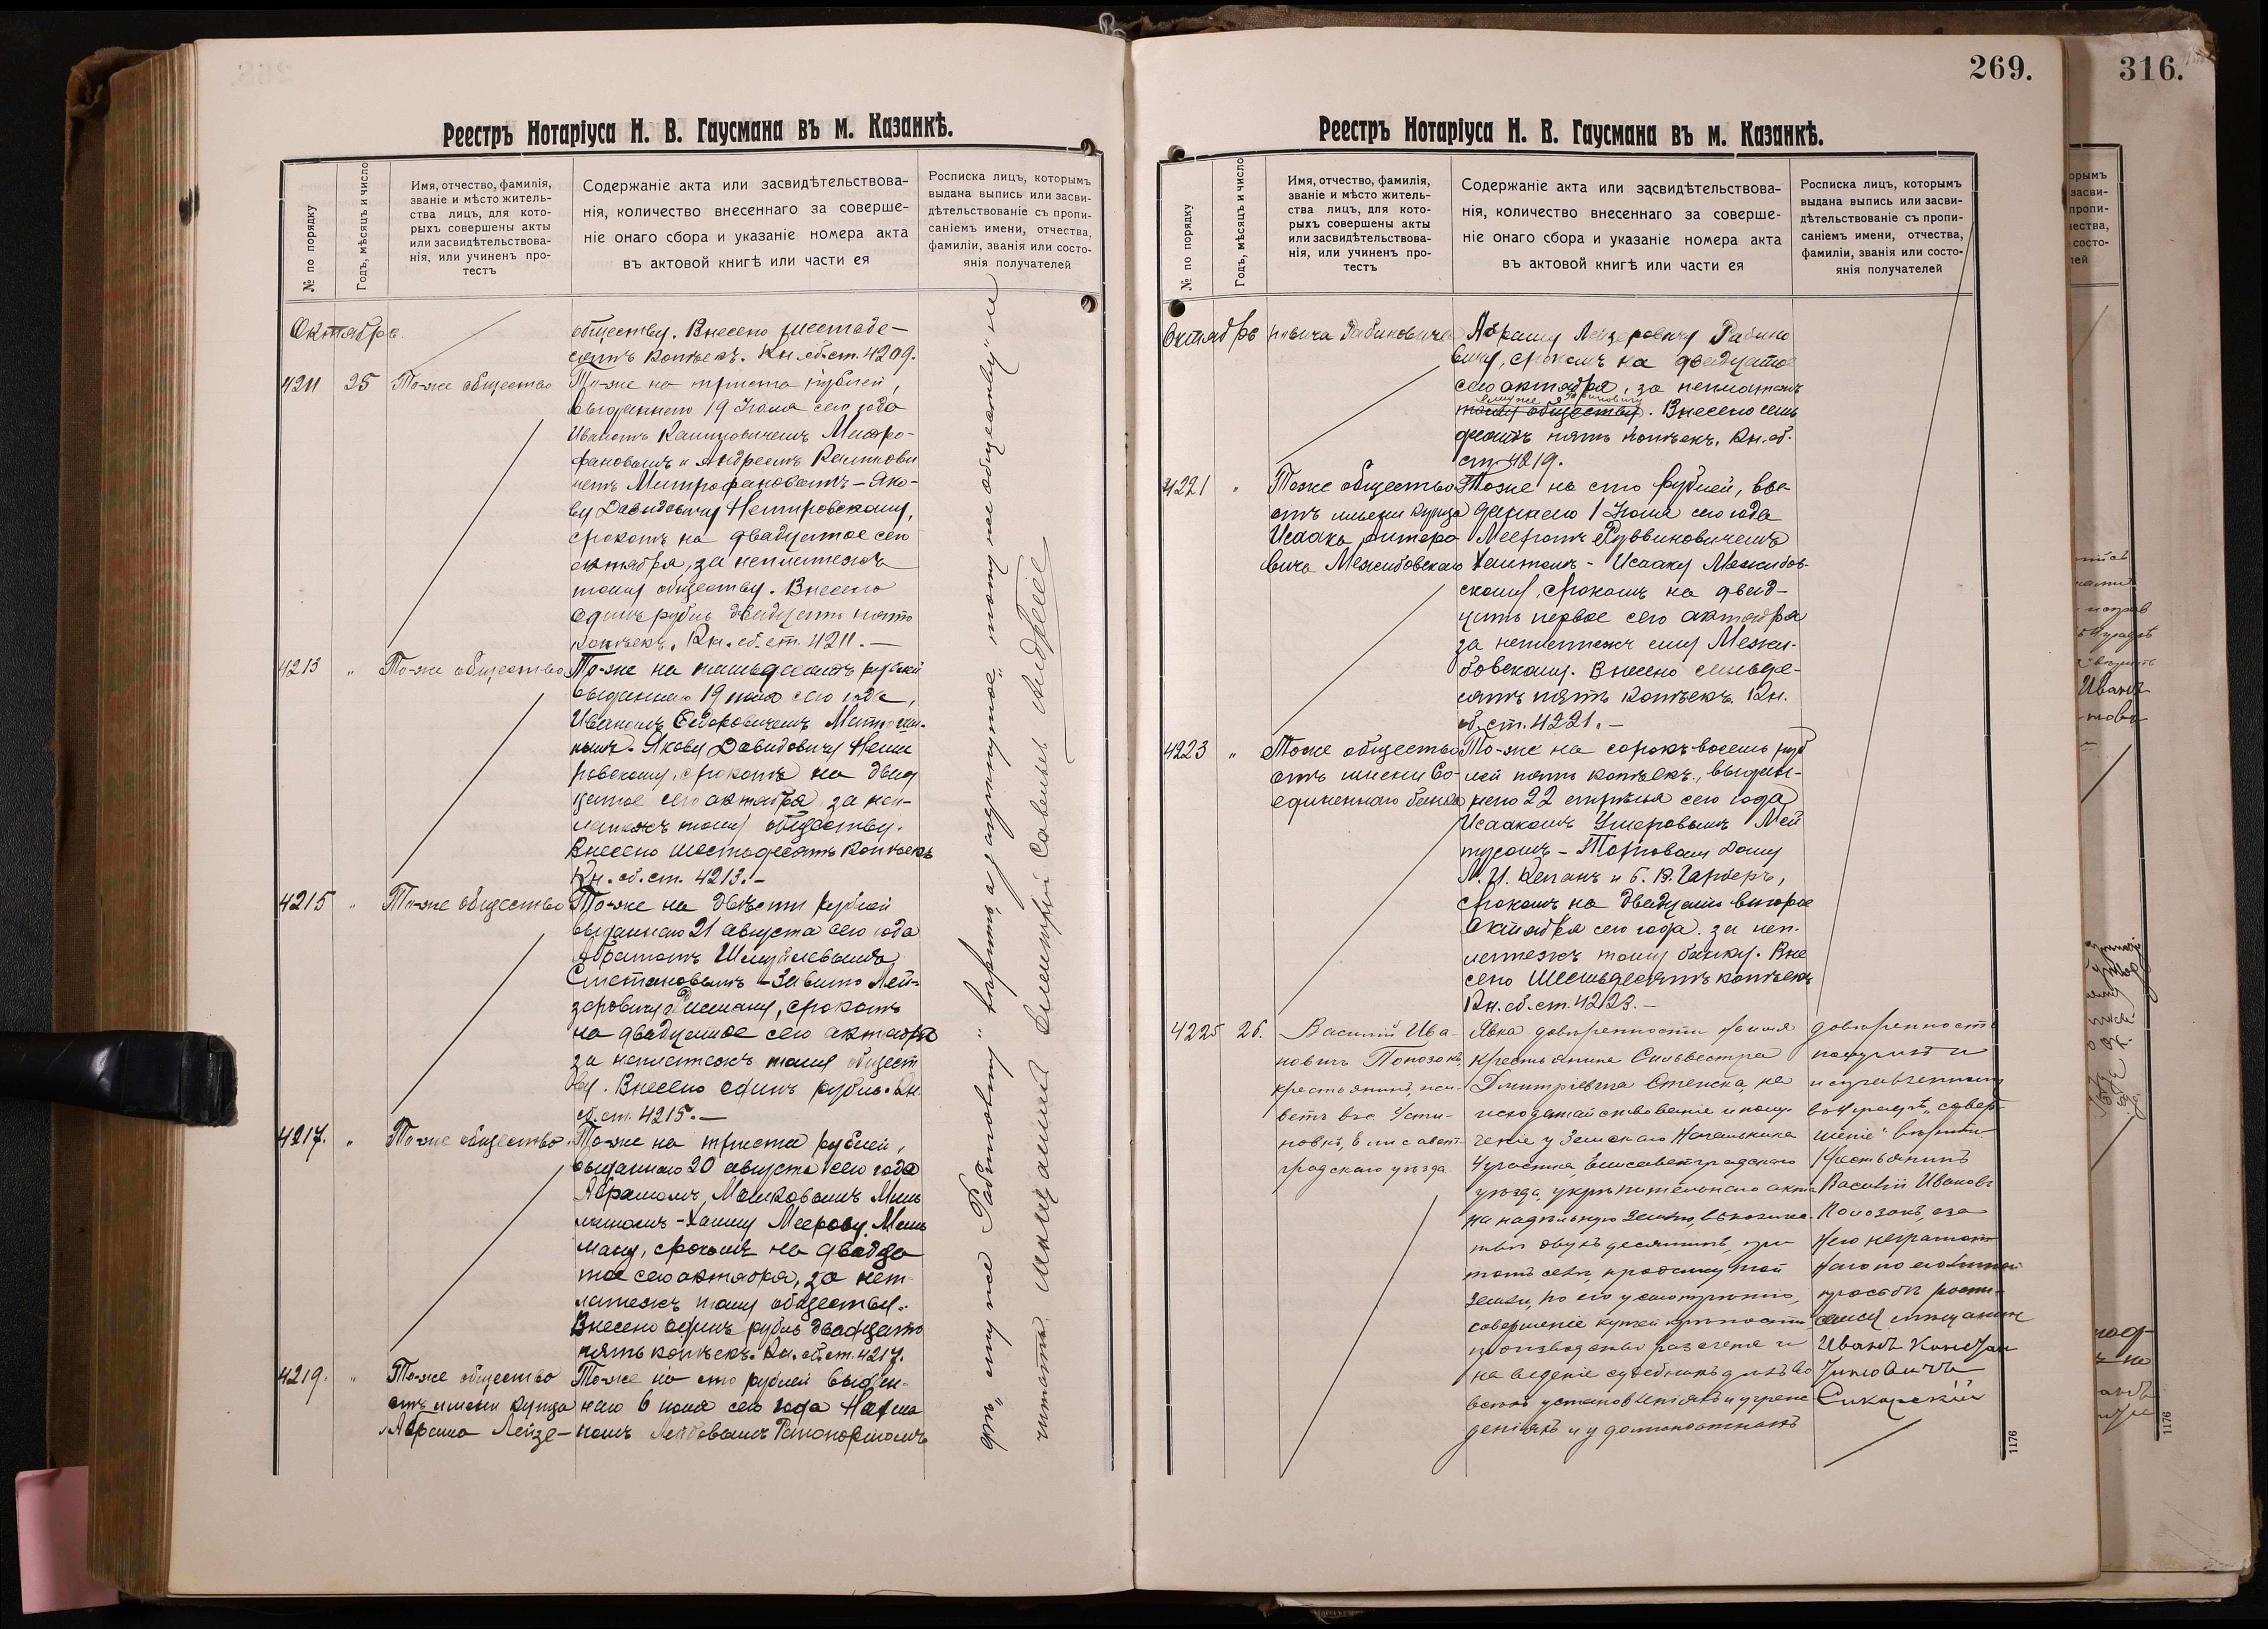 Реестръ Нотаріуса Н. В. Гаусмана въ м. Казанкѣ.
№ по порядку
Годъ, мѣсяцъ и число
Имя, отчество, фамилія,
званіе и мѣсто житель-
ства лицъ, для кото-
рыхъ совершены акты
или засвидѣтельствова-
нія, или учиненъ про-
тестъ
Содержаніе акта или засвидѣтельствова-
нія, количество внесеннаго за соверше-
ніе онаго сбора и указаніе номера акта
въ актовой книгѣ или части ея
Росписка лицъ, которымъ
выдана выпись или засви-
дѣтельствованіе съ пропи-
саніемъ имени, отчества,
фамиліи, званія или состо-
янія получателей
Октябрь
обществу. Внесено шестьде-
сятъ копѣекъ. Кн. сб. ст. 4209.
4211 25 То-же общество
То-же на триста рублей,
выданнаго 19 Іюля сего года
Иваномъ Калиновичемъ Митро-
фановымъ и Андреемъ Калинови
чемъ Митрофановымъ - Яко-
ву Давидовичу Немировскому,
срокомъ на двадцатое сего
октября, за неплатежъ
тому обществу. Внесено
одинъ рубль двадцать пять
копѣекъ. Кн. сб. ст. 4211. -
4213 " То-же общество
То-же на пятьдесятъ рублей
выданнаго 19 іюля сего года,
Иваномъ Ѳедоровичемъ
Якову Давидовичу Неми
ровскому, срокомъ на двад
цатое сего октября за неп-
латежъ тому обществу.
Внесено шестьдесятъ копѣекъ
Кн. сб. ст. 4213. -
4215 " То-же общество
То-же на двѣсти рублей
выданнаго 21 августа сего года
Абрамомъ Шмулевымъ
Сметановымъ - Лей-
зеровичу срокомъ
на двадцатое сего октября
за неплатежъ тому общест
ву. Внесено одинъ рубль. Кн.
сб. ст. 4215. -
4217. " То-же общество.
То-же на триста рублей,
выданнаго 20 августа сего года
Абрамомъ Мошковымъ Миль
маномъ - Хаиму Меерову Миль
ману, срокомъ на двадца
тое сего октября, за неп-
латежъ тому обществу.
Внесено одинъ рубль двадцать
пять копѣекъ. Кн. сб. ст. 4217.
4219. " То-же общество
отъ имени купца
Абрама Лейзе-
То-же на сто рублей выдан-
наго 6 іюля сего года
Лейбовымъ Рапопортомъ
ему же Рабиновичу" вѣрить, а зачеркнутое "тому же обществу" не
читать. Мѣщанинъ Климентій Савельевъ Андреевъ
269.
Реестръ Нотаріуса Н. В. Гаусмана въ м. Казанкѣ.
№ по порядку
Годъ, мѣсяцъ и число
Имя, отчество, фамилія,
званіе и мѣсто житель-
ства лицъ, для кото-
рыхъ совершены акты
или засвидѣтельствова-
нія, или учиненъ про-
тестъ
Содержаніе акта или засвидѣтельствова-
нія, количество внесеннаго за соверше-
ніе онаго сбора и указаніе номера акта
въ актовой книгѣ или части ея
Росписка лицъ, которымъ
выдана выпись или засви-
дѣтельствованіе съ пропи-
саніемъ имени, отчества,
фамиліи, званія или состо-
янія получателей
Октябрь
ровича Рабиновича
Абраму Лейзеровичу Рабино
вичу, срокомъ на двадцатое
сего октября, за неплатежъ
ему же Рабиновичу
тому обществу. Внесено семь
десятъ пять копѣекъ. Кн. сб.
ст. 4219.
4221 " Тоже общество
отъ имени купца
Исаака
вича Межибовскаго
Тоже на сто рублей, вы-
даннаго 1 Іюля сего года
Мееромъ Рувиновичемъ
Хаитомъ - Исааку Межибов-
скому, срокомъ на двад-
цать первое сего октября
за неплатежъ ему Межи-
бовскому. Внесено семьде-
сятъ пять копѣекъ. Кн.
сб. ст. 4221. -
4223 " Тоже общество
отъ имени Со-
единеннаго банка
То-же на сорокъ восемь руб
лей пять копѣекъ, выдан-
наго 22 апрѣля сего года
Исаакомъ Умеровымъ Мей
тусомъ - Торговому Дому
Л. И. Кепанъ и Б. В. Гарберъ,
срокомъ на двадцать второе
октября сего года. за неп-
латежъ тому банку. Вне
сено шестьдесятъ копѣекъ
Кн. сб. ст. 4223. -
4225 26. Василій Ива-
новичъ Полозокъ,
крестьянинъ, жи-
ветъ въ с. Усти-
новкѣ, Елисавет-
градскаго уѣзда
Явка довѣренности
крестьянина Сильвестра
Дмитріевича на
исходатайствованіе и полу-
ченіе у Земскаго Начальника
4 участка, Елисаветградскаго
уѣзда, укрѣпительнаго акта
на надѣльную землю, въ количе-
ствѣ двухъ десятинъ, при
томъ селѣ, продажу той
земли, по его усмотрѣнію,
совершеніе купчей крѣпости
производство разсчета и
на веденіе судебныхъ дѣлъ во
всѣхъ установленіяхъ и учреж
деніяхъ и у должностныхъ
довѣренность
получилъ и
исправленному
"совер-
шеніе" вѣрить
Крестьянинъ
Василій Ивановъ
Полозокъ, а за
него неграмот
наго по его личной
просьбѣ роспи-
сался мѣщанинъ
Иванъ
Сикорскій
1176
316.
1176